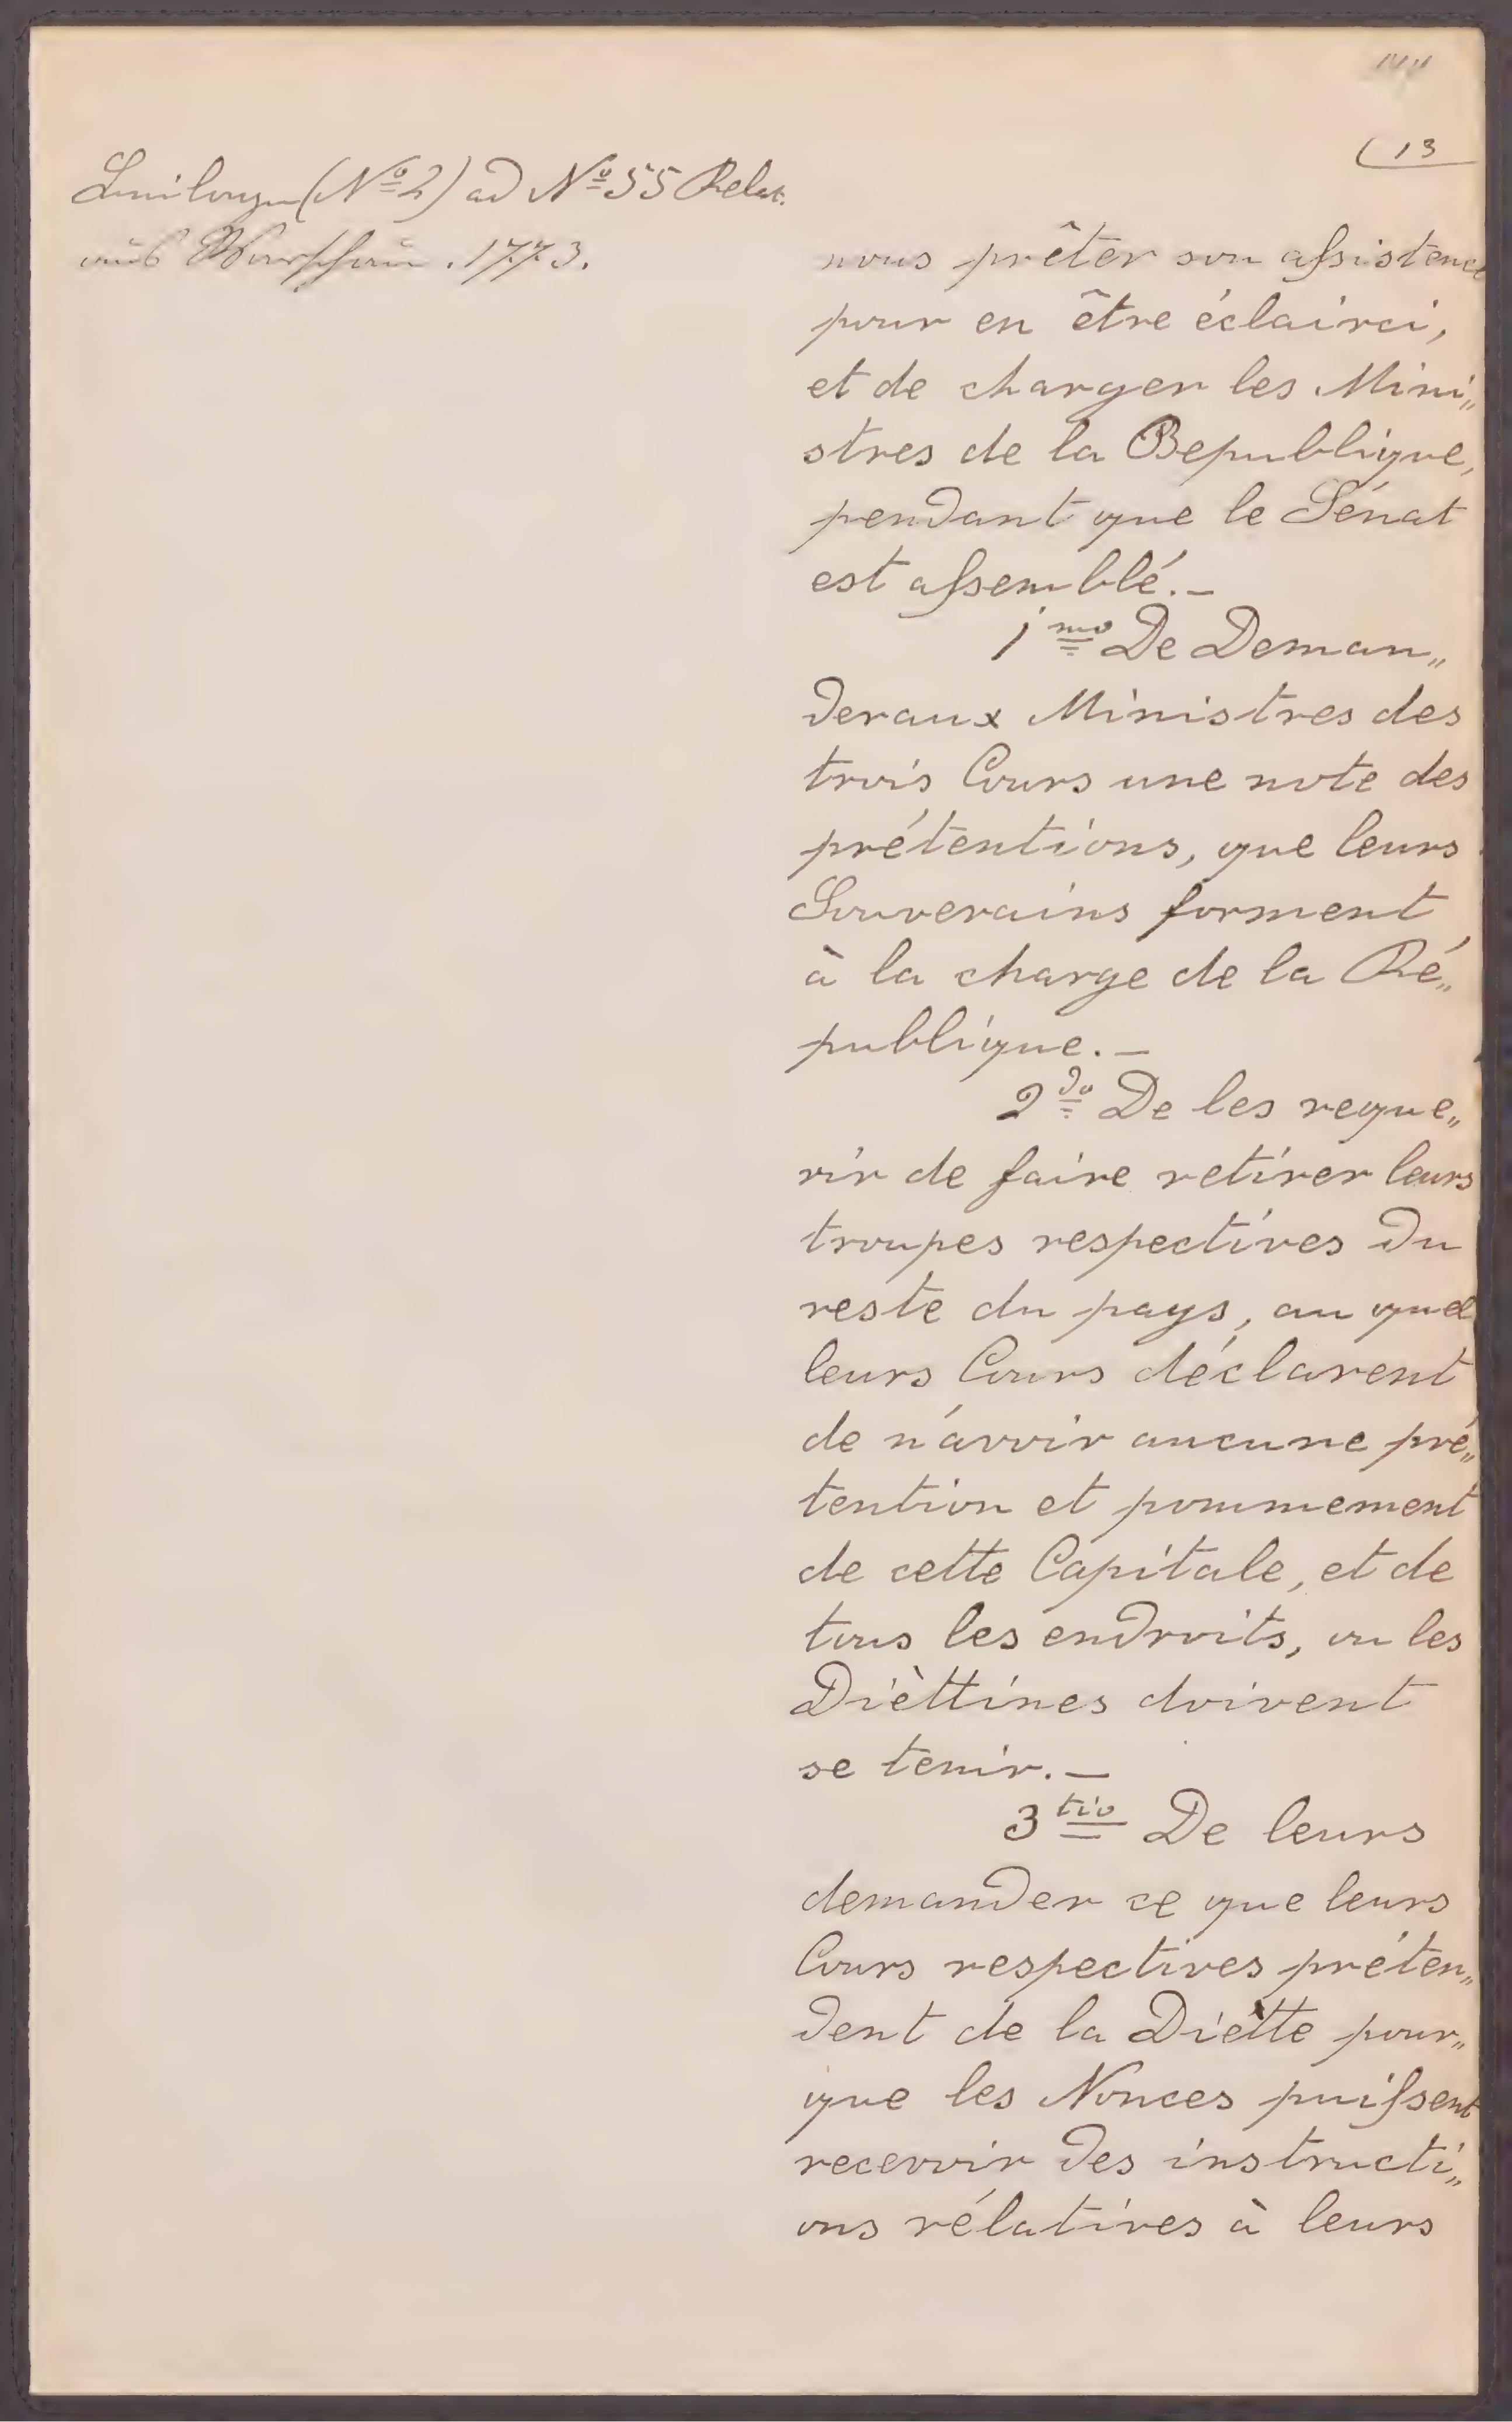 13
Beilage (Nº 2) ad Nº 55 Relat.
aus Warschau . 1773.
nous prêter son assistence
pour en être éclairci,
et de charger les Mini„
stres de la Republique,
pendant que le Sénat
est assemblé. –
1mo De Deman„
der aux Ministres des
trois Cours une note des
prétentions, que leurs
Souverains forment
à la charge de la Ré„
publique. –
2do De les reque„
rir de faire retirer leurs
troupes respectives du
reste du pays, au quel
leurs Cours déclarent
de n'avoir aucune pré„
tention et pommement
de cette Capitale, et de
tous les endroits, ou les
Dièttines doivent
se tenir. –
3tio De leurs
demander ce que leurs
Cours respectives préten„
dent de la Diètte pour„
que les Nonces puissent
recevoir des instructi„
ons rélatives à leurs